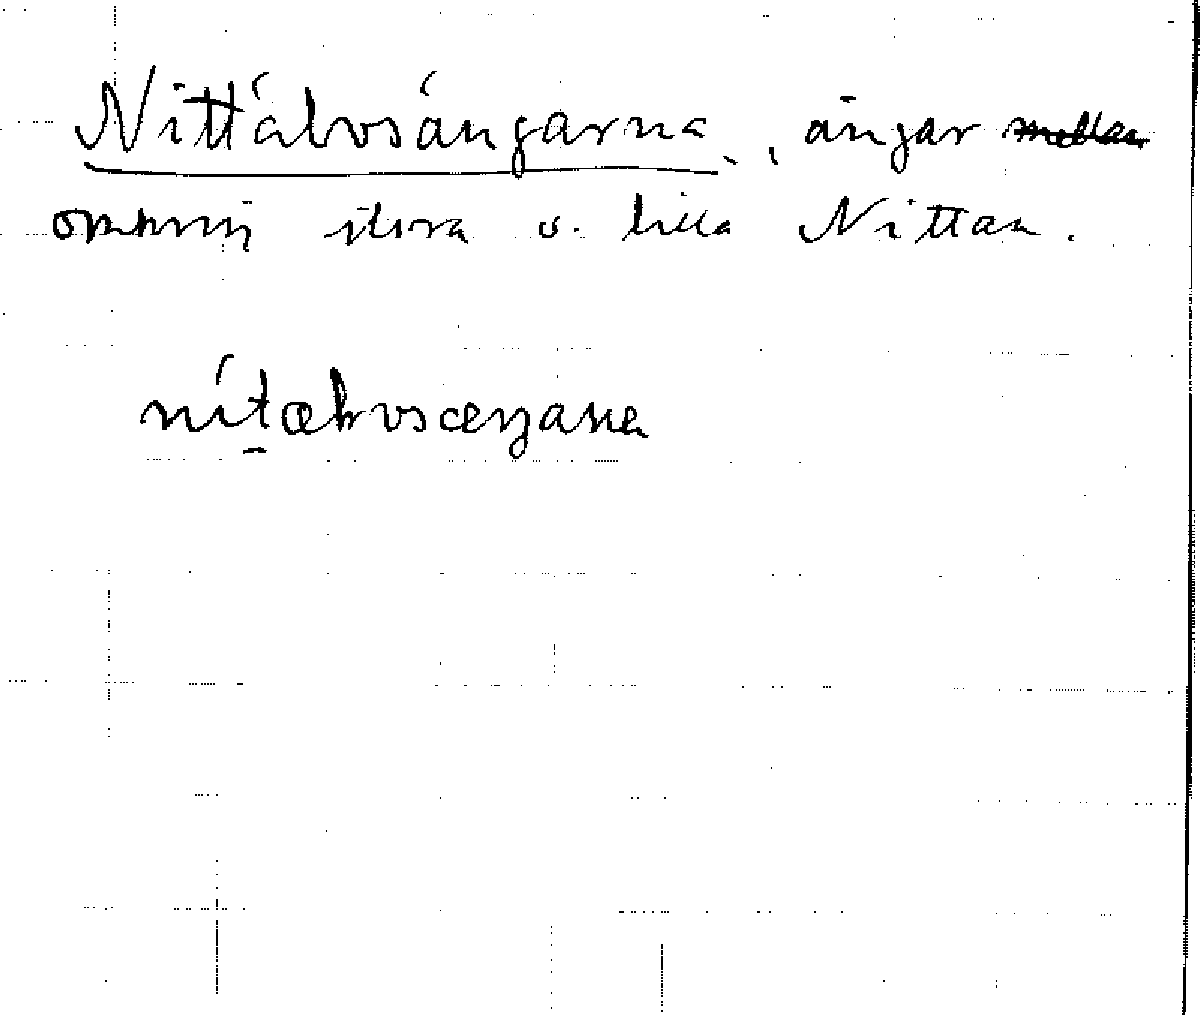 Nittälvsängarna, ängar mellan
omkring stora o. lilla Nittan.